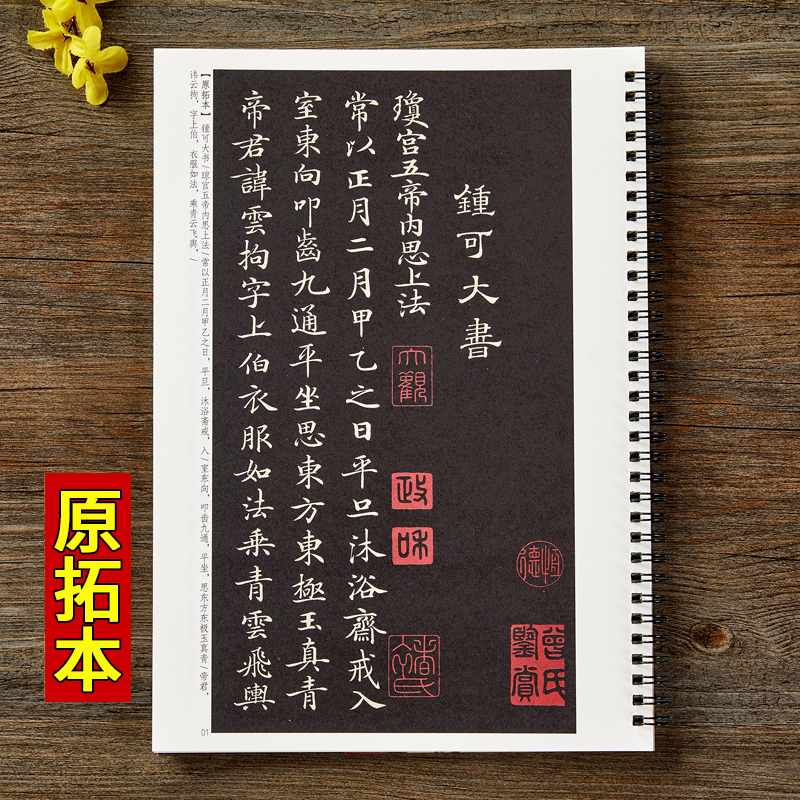 鍾可大書
瓊宮五帝內思上法
常以正月二月甲乙之日平旦沐浴齋戒入
室東向叩齒九通平坐思東方東極玉真青
帝君諱雲拘字上伯衣服如法乘青雲飛輿
大觀
政
和
曾氏
鑒賞
【原拓本】 锺可大书/琼宫五帝内思上法/常以正月二月甲乙之日，平旦，沐浴斋戒，入/室东向，叩齿九通，平坐，思东方东极玉真青/帝君，
讳云拘，字上伯，衣服如法，乘青云飞舆，/
01
原拓本